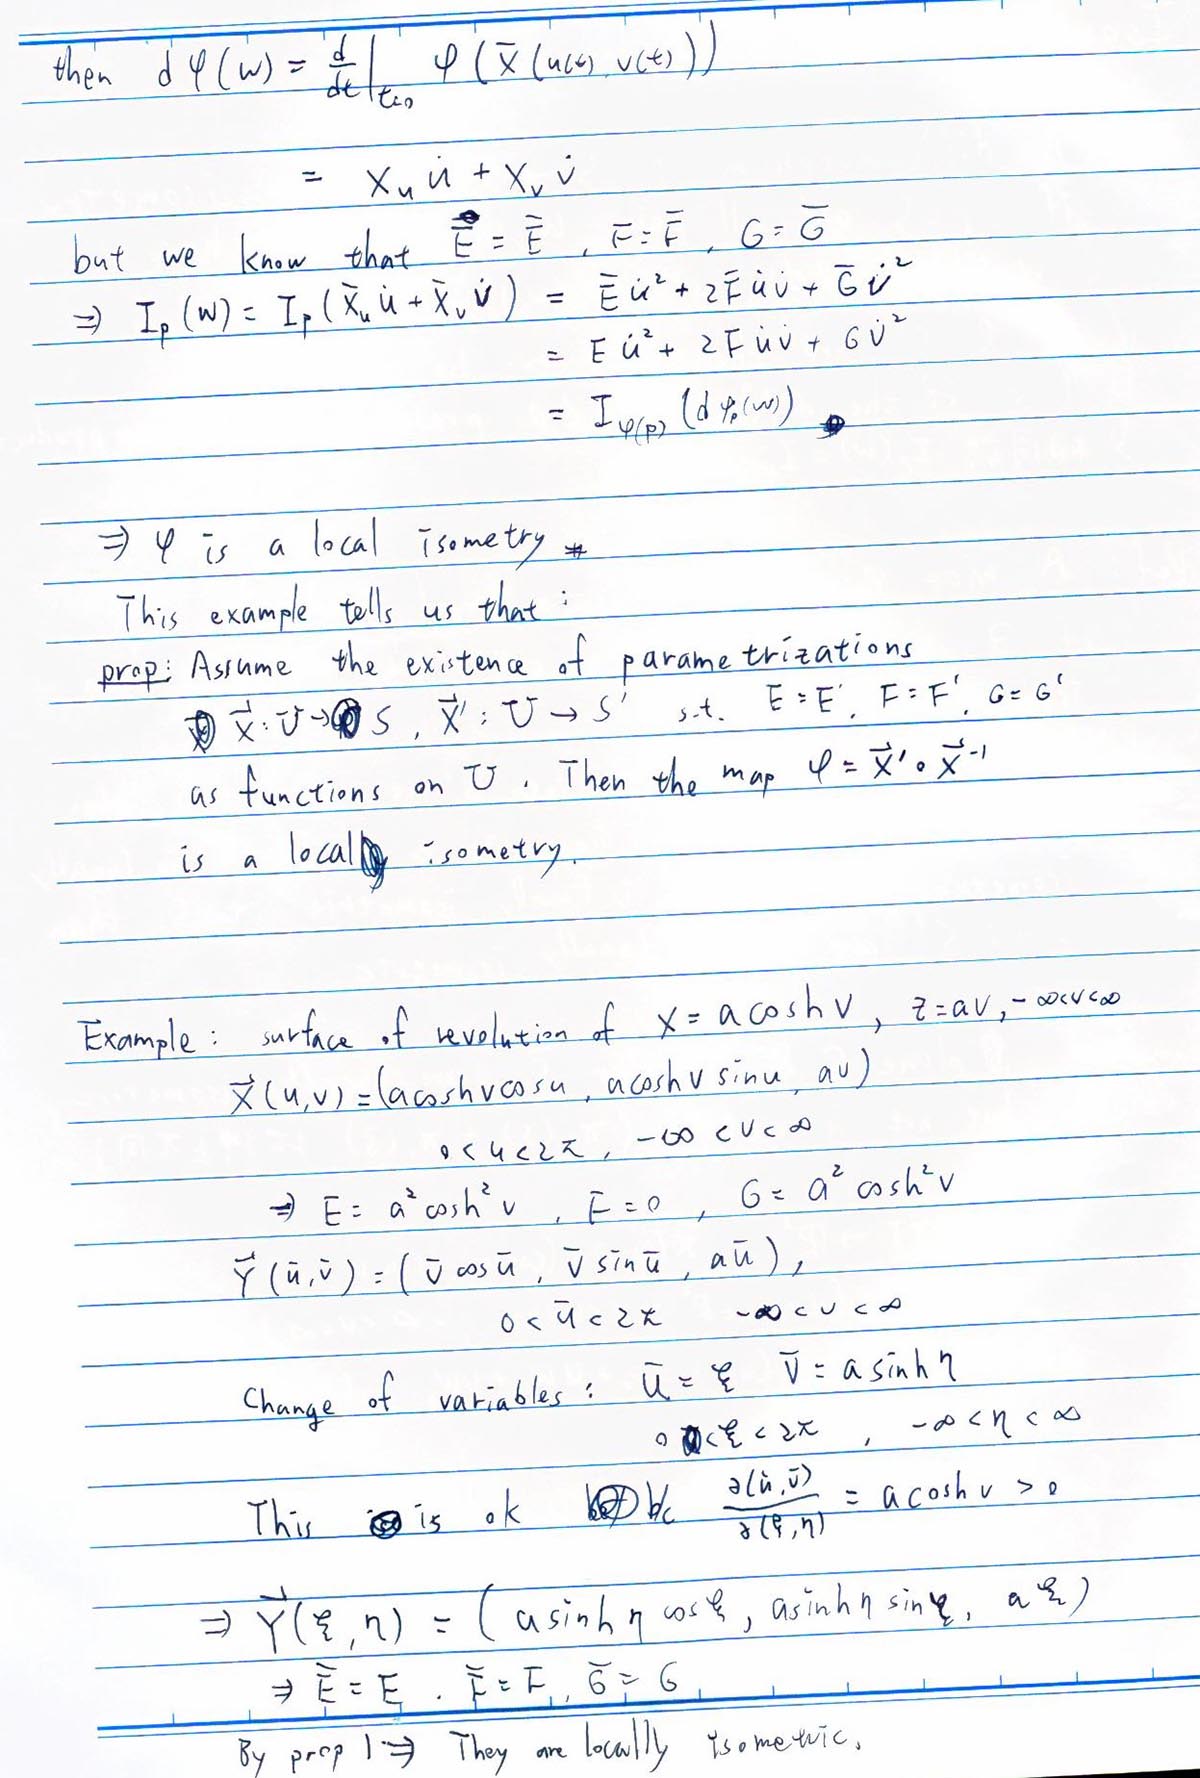 then dφ(w) = d/dt|t=0 φ(X̄(u(t), v(t)))
= Xu u̇ + Xv v̇
but we know that E = Ē, F = F̄, G = Ḡ
⇒ Ip(w) = Ip(X̄u u̇ + X̄v v̇) = Ē u̇² + 2F̄ u̇v̇ + Ḡ v̇²
= E u̇² + 2F u̇v̇ + G v̇²
= Iφ(p)(dφp(w))
⇒ φ is a local isometry #
This example tells us that :
prop: Assume the existence of parametrizations
X⃗ : U → S, X⃗' : U → S' s.t. E = E', F = F', G = G'
as functions on U. Then the map φ = X⃗' ∘ X⃗⁻¹
is a local isometry.
Example : surface of revolution of x = a cosh v, z = av, -∞<v<∞
X⃗(u,v) = (a cosh v cos u, a cosh v sin u, av)
0 < u < 2π, -∞ < v < ∞
⇒ E = a² cosh² v, F = 0, G = a² cosh² v
Y⃗(ū,v̄) = (v̄ cos ū, v̄ sin ū, aū),
0 < ū < 2π -∞ < v < ∞
Change of variables : ū = ξ v̄ = a sinh η
0 < ξ < 2π, -∞ < η < ∞
This is ok b/c ∂(ū,v̄)/∂(ξ,η) = a cosh v > 0
⇒ Y⃗(ξ,η) = (a sinh η cos ξ, a sinh η sin ξ, aξ)
⇒ Ē = E. F̄ = F, Ḡ = G
By prop 1 ⇒ They are locally isometric.